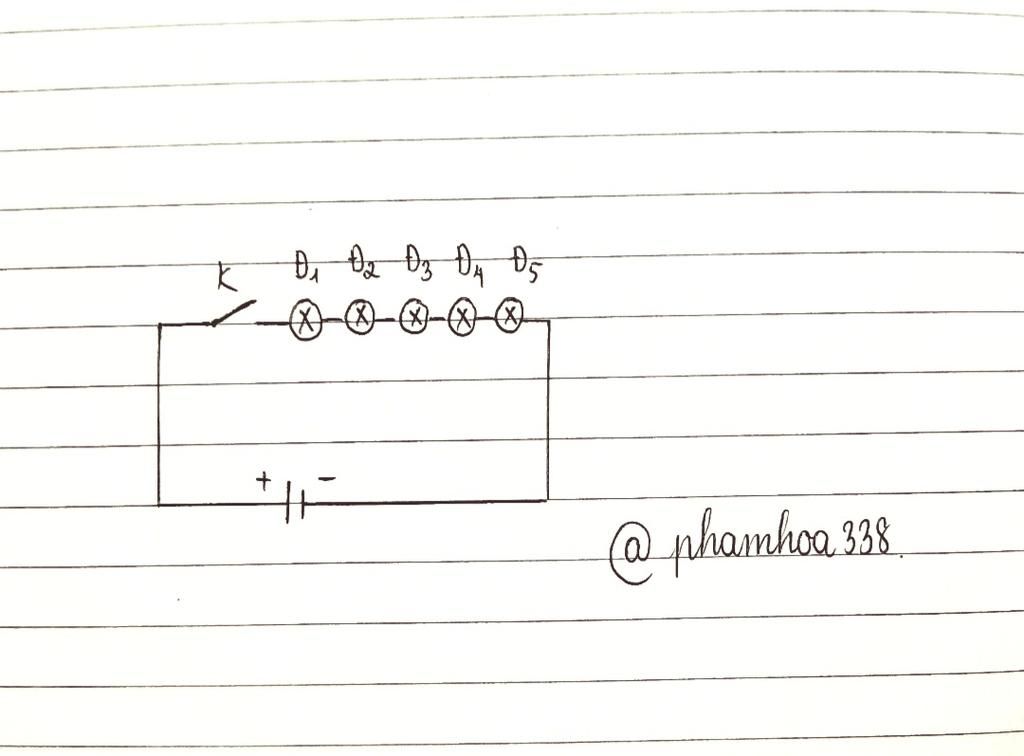 K Đ1 Đ2 Đ3 Đ4 Đ5
+ −
@phamhoa338.